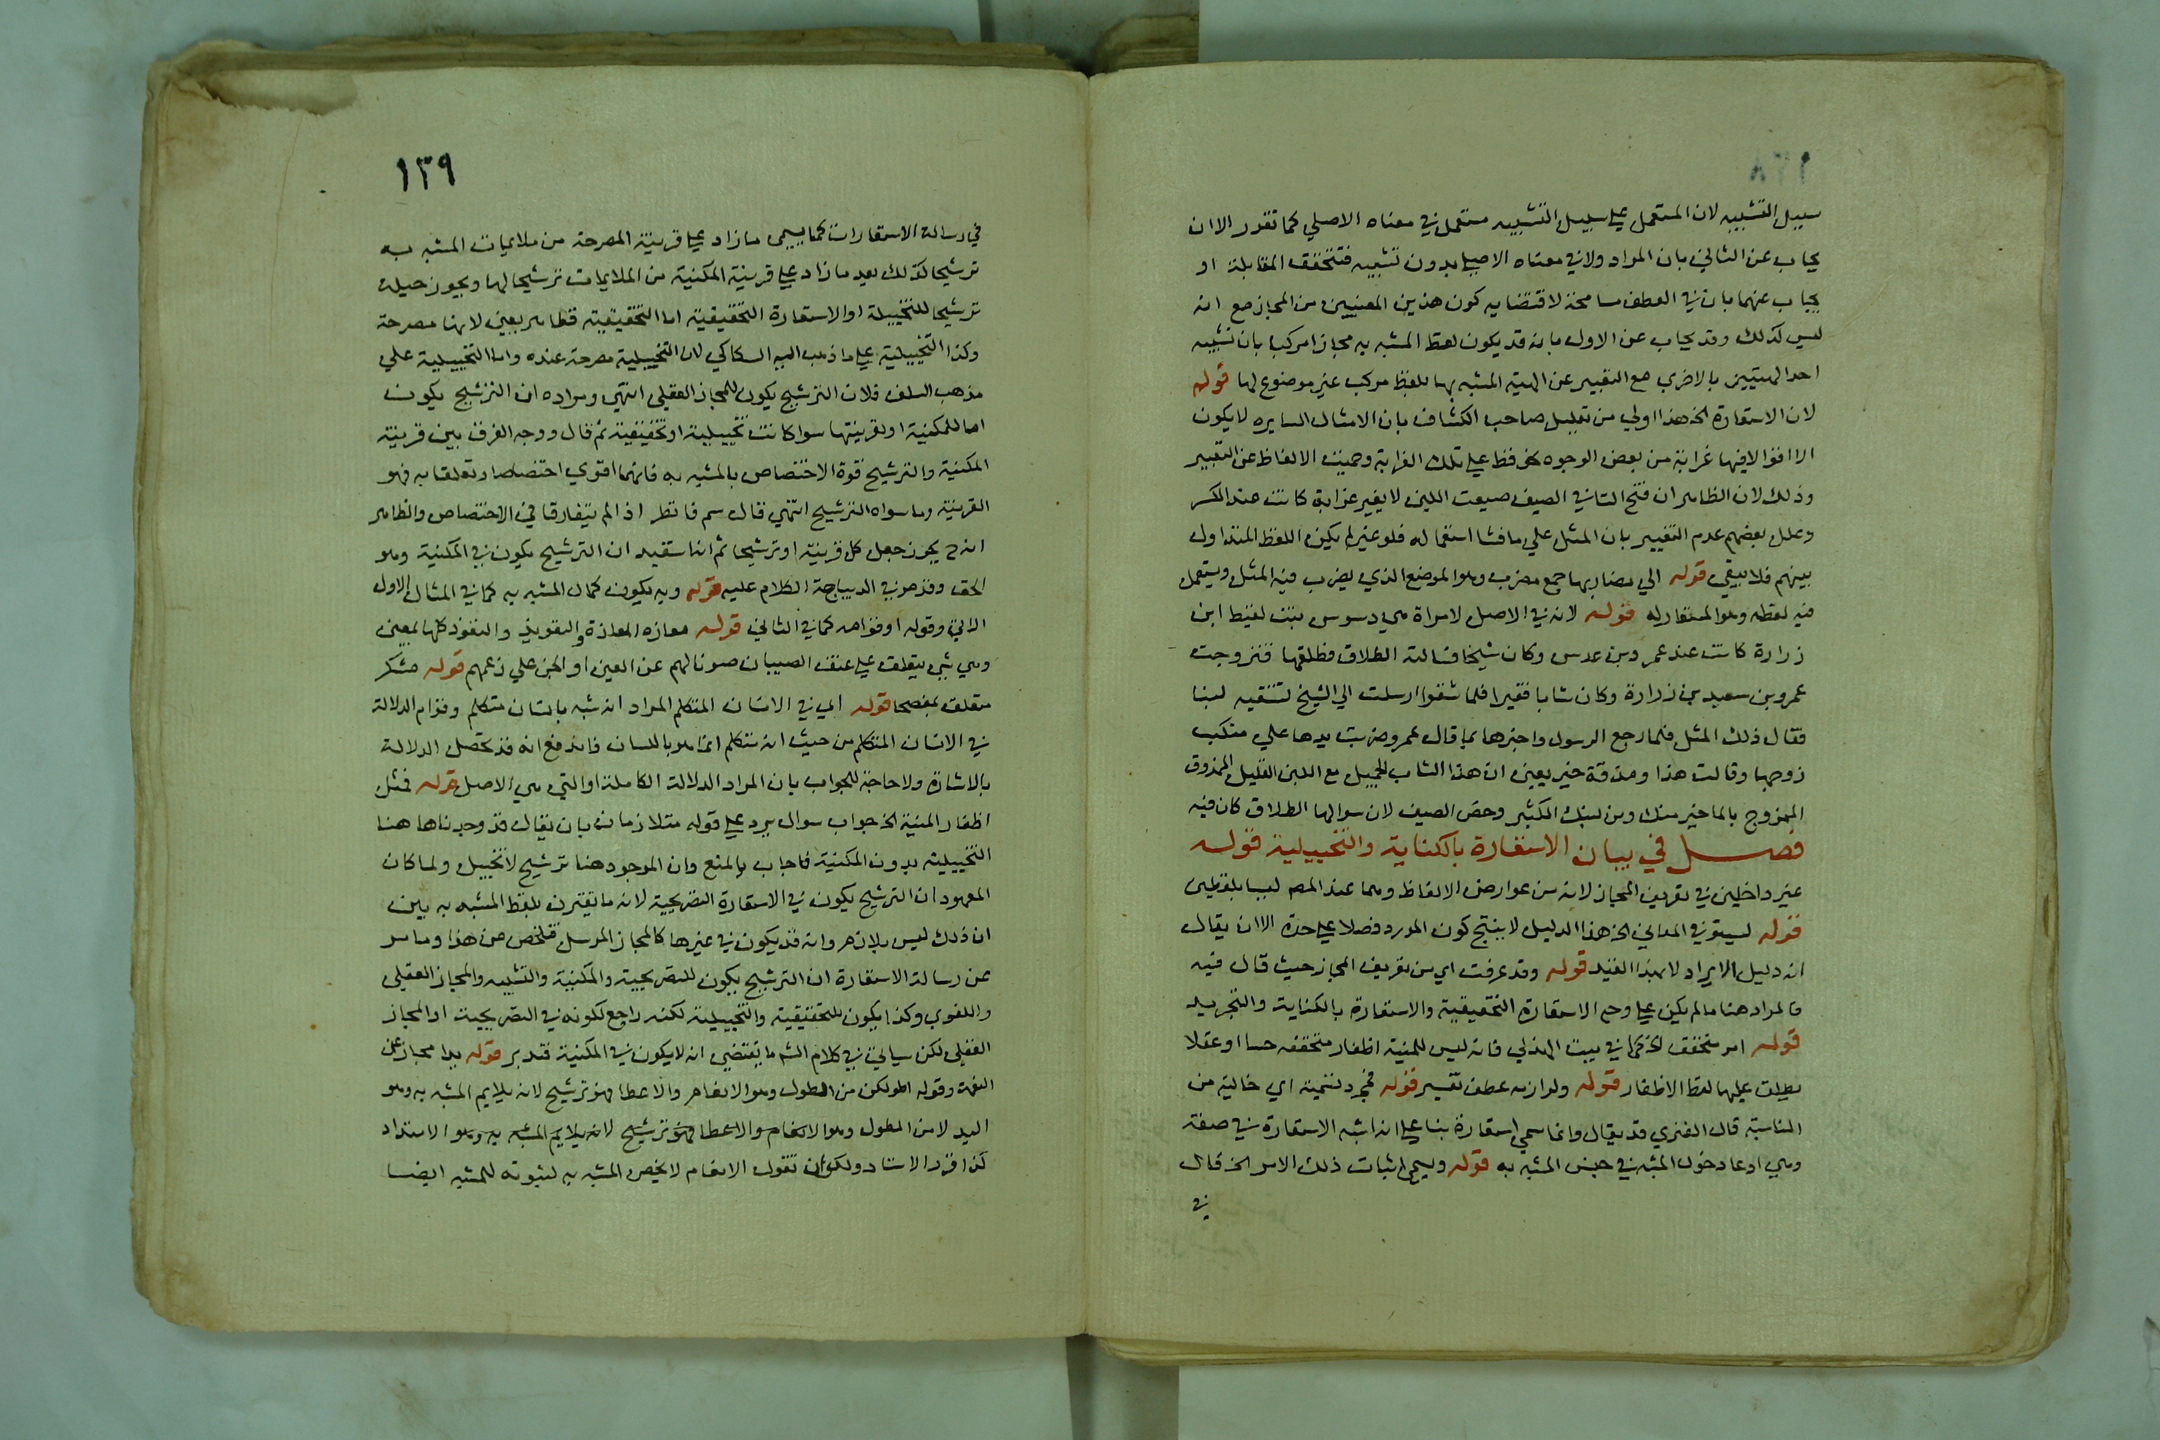 ١٣٨
سبيل التشبيه لان المستعمل علي سبيل التشبيه مستعمل في معناه الاصلي كما تقرر الا ان
يجاب عن الثاني بان المراد ولا في معناه الاصلي بدون تشبيه فتتحقق المقابلة او
يجاب عنهما بان في العطف مسامحة لاقتضايه كون هذين المعنيين من المجاز مع انه
ليس كذلك وقد يجاب عن الاول بانه قد يكون لفظ المشبه به مجازا مركبا بان تشبه
احد الهيئتين بالاخري مع التعبير عن الهيئة المشبه بها بلفظ مركب غير موضوع لها قوله
لان الاستعارة الخ هذا اولي من تعليل صاحب الكشاف بان الامثال السايره لا يكون
الا اقوالا فيها غرابة من بعض الوجوه فحوفظ علي تلك الغرابة وحميت الالفاظ عن التغيير
وذلك لان الظاهر ان فتح التا في الصيف ضيعت اللبن لا يغير غرابة كانت عند الكسر
وعلل بعضهم عدم التغيير بان المثل علي ما فشا استعماله فلو غير لم يكن اللفظ المتداول
بينهم فلا يبقي قوله الي مضاربها جمع مضرب وهو الموضع الذي يضرب فيه المثل ويستعمل
فيه لفظه وهو المستعار له قوله لانه في الاصل لامراة هي دسوس بنت لقيط ابن
زرارة كانت عند عمرو بن عدس وكان شيخا فسالته الطلاق فطلقها فتزوجت
عمرو بن سعيد بن زرارة وكان شابا فقيرا فلما شتوا ارسلت الي الشيخ تستقيه لبنا
فقال ذلك المثل فلما رجع الرسول واخبرها بما قال عمرو ضربت يدها علي منكب
زوجها وقالت هذا ومذقة خير يعني ان هذا الشاب الجميل مع اللبن القليل الممذوق
الممزوج بالما خير منك ومن لبنك الكثير وخص الصيف لان سوالها الطلاق كان فيه
فصل في بيان الاستعارة بالكناية والتخييلية قوله
غير داخلين في تعريف المجاز لانه من عوارض الالفاظ وهما عند المص ليسا بلفظين
قوله ليستوفي المعاني الخ هذا الدليل لا ينتج كون المورد فصلا علي حدة الا ان يقال
انه دليل الايراد لا بهذا القيد قوله وقد عرفت اي من تعريف المجاز حيث قال فيه
فالمراد هنا ما لم يكن علي وجه الاستعارة التحقيقية والاستعارة بالكناية والتجريد
قوله امر متحقق الخ كما في بيت الهذلي فانه ليس للمنية اظفار متحققه حسا او عقلا
يطلق عليها لفظ الاظفار قوله ولوازمه عطف تفسير قوله مجرد تسمية اي خالية من
المناسبة قال الفنري قد يقال وانما سمي استعارة بنا علي انه اشبه الاستعارة في صفة
وهي ادعا دخول المشبه في جنس المشبه به قوله ويسمي اثبات ذلك الامر الخ قال
في
١٣٩
في رسالة الاستعارات كما يسمي ما زاد علي قرينة المصرحة من ملايمات المشبه به
ترشيحا كذلك يعد ما زاد علي قرينة المكنية من الملايمات ترشيحا لها ويجوز جعله
ترشيحا للتخييلة او الاستعارة التحقيقية اما التحقيقية فظاهر يعني لانها مصرحة
وكذا التخييلية علي ما ذهب اليه السكاكي لان التخييلية مصرحة عنده واما التخييلية علي
مذهب السلف فلان الترشيح يكون للمجاز العقلي انتهي ومراده ان الترشيح يكون
اما للمكنية او لقرينتها سوا كانت تخييلية او تحقيقية ثم قال ووجه الفرق بين قرينة
المكنية والترشيح قوة الاختصاص بالمشبه به فايهما اقوي اختصاصا وتعلقا به فهو
القرينة وما سواه الترشيح انتهي قال سم فانظر اذا لم يتفارقا في الاختصاص والظاهر
انه ح يجوز جعل كل قرينة او ترشيحا ثم انه استفيد ان الترشيح يكون في المكنية وهو
الحق وقد مر في الديباجة الكلام عليه قوله وبه يكون كمال المشبه به كما في المثال الاول
الاتي وقوله او قوامه كما في الثاني قوله معاذه المعاذة والتعويذ والتعوذ كلها بمعني
وهي شي يتعلق علي عنق الصبيان صونا لهم عن العين او الجن علي زعمهم قوله مشكر
متعلق بمفصحا قوله اي في الانسان المتكلم المراد انه شبه بانسان متكلم وقوام الدلالة
في الانسان المتكلم من حيث انه متكلم انما هو باللسان فاندفع انه قد تحصل الدلالة
بالاشارة ولا حاجة للجواب بان المراد الدلالة الكاملة او التي هي الاصل قوله فمثل
اظفار المنية الخ جواب سوال يرد علي قوله متلازمان بان يقال قد وجدناها هنا
التخييلية بدون المكنية فاجاب بالمنع وان الموجود هنا ترشيح لا تخييل ولما كان
المعهود ان الترشيح يكون في الاستعارة التصريحية لانه ما يقترن بلفظ المشبه به بين
ان ذلك ليس بلازم وانه قد يكون في غيرها كالمجاز المرسل فتلخص من هذا وما مر
عن رسالة الاستعارة ان الترشيح يكون للتصريحية والمكنية والتشبيه والمجاز العقلي
واللغوي وكذا يكون للتحقيقية والتخييلية لكنه راجع لكونه في التصريحية او المجاز
العقلي لكن سياتي في كلام الشم ما يقتضي انه لا يكون في المكنية فتدبر قوله يدا مجاز عن
النعمة وقوله اطولكن من الطول وهو الانعام والاعطا فهو ترشيح لانه يلايم المشبه به وهو
اليد لا من الطول وهو الانعام والاعطا فهو ترشيح لانه يلايم المشبه به وهو الاستداد
كذا قرر الاستاد ولكن ان تقول الانعام لا يخص المشبه به لثبوته للمشبه ايضا